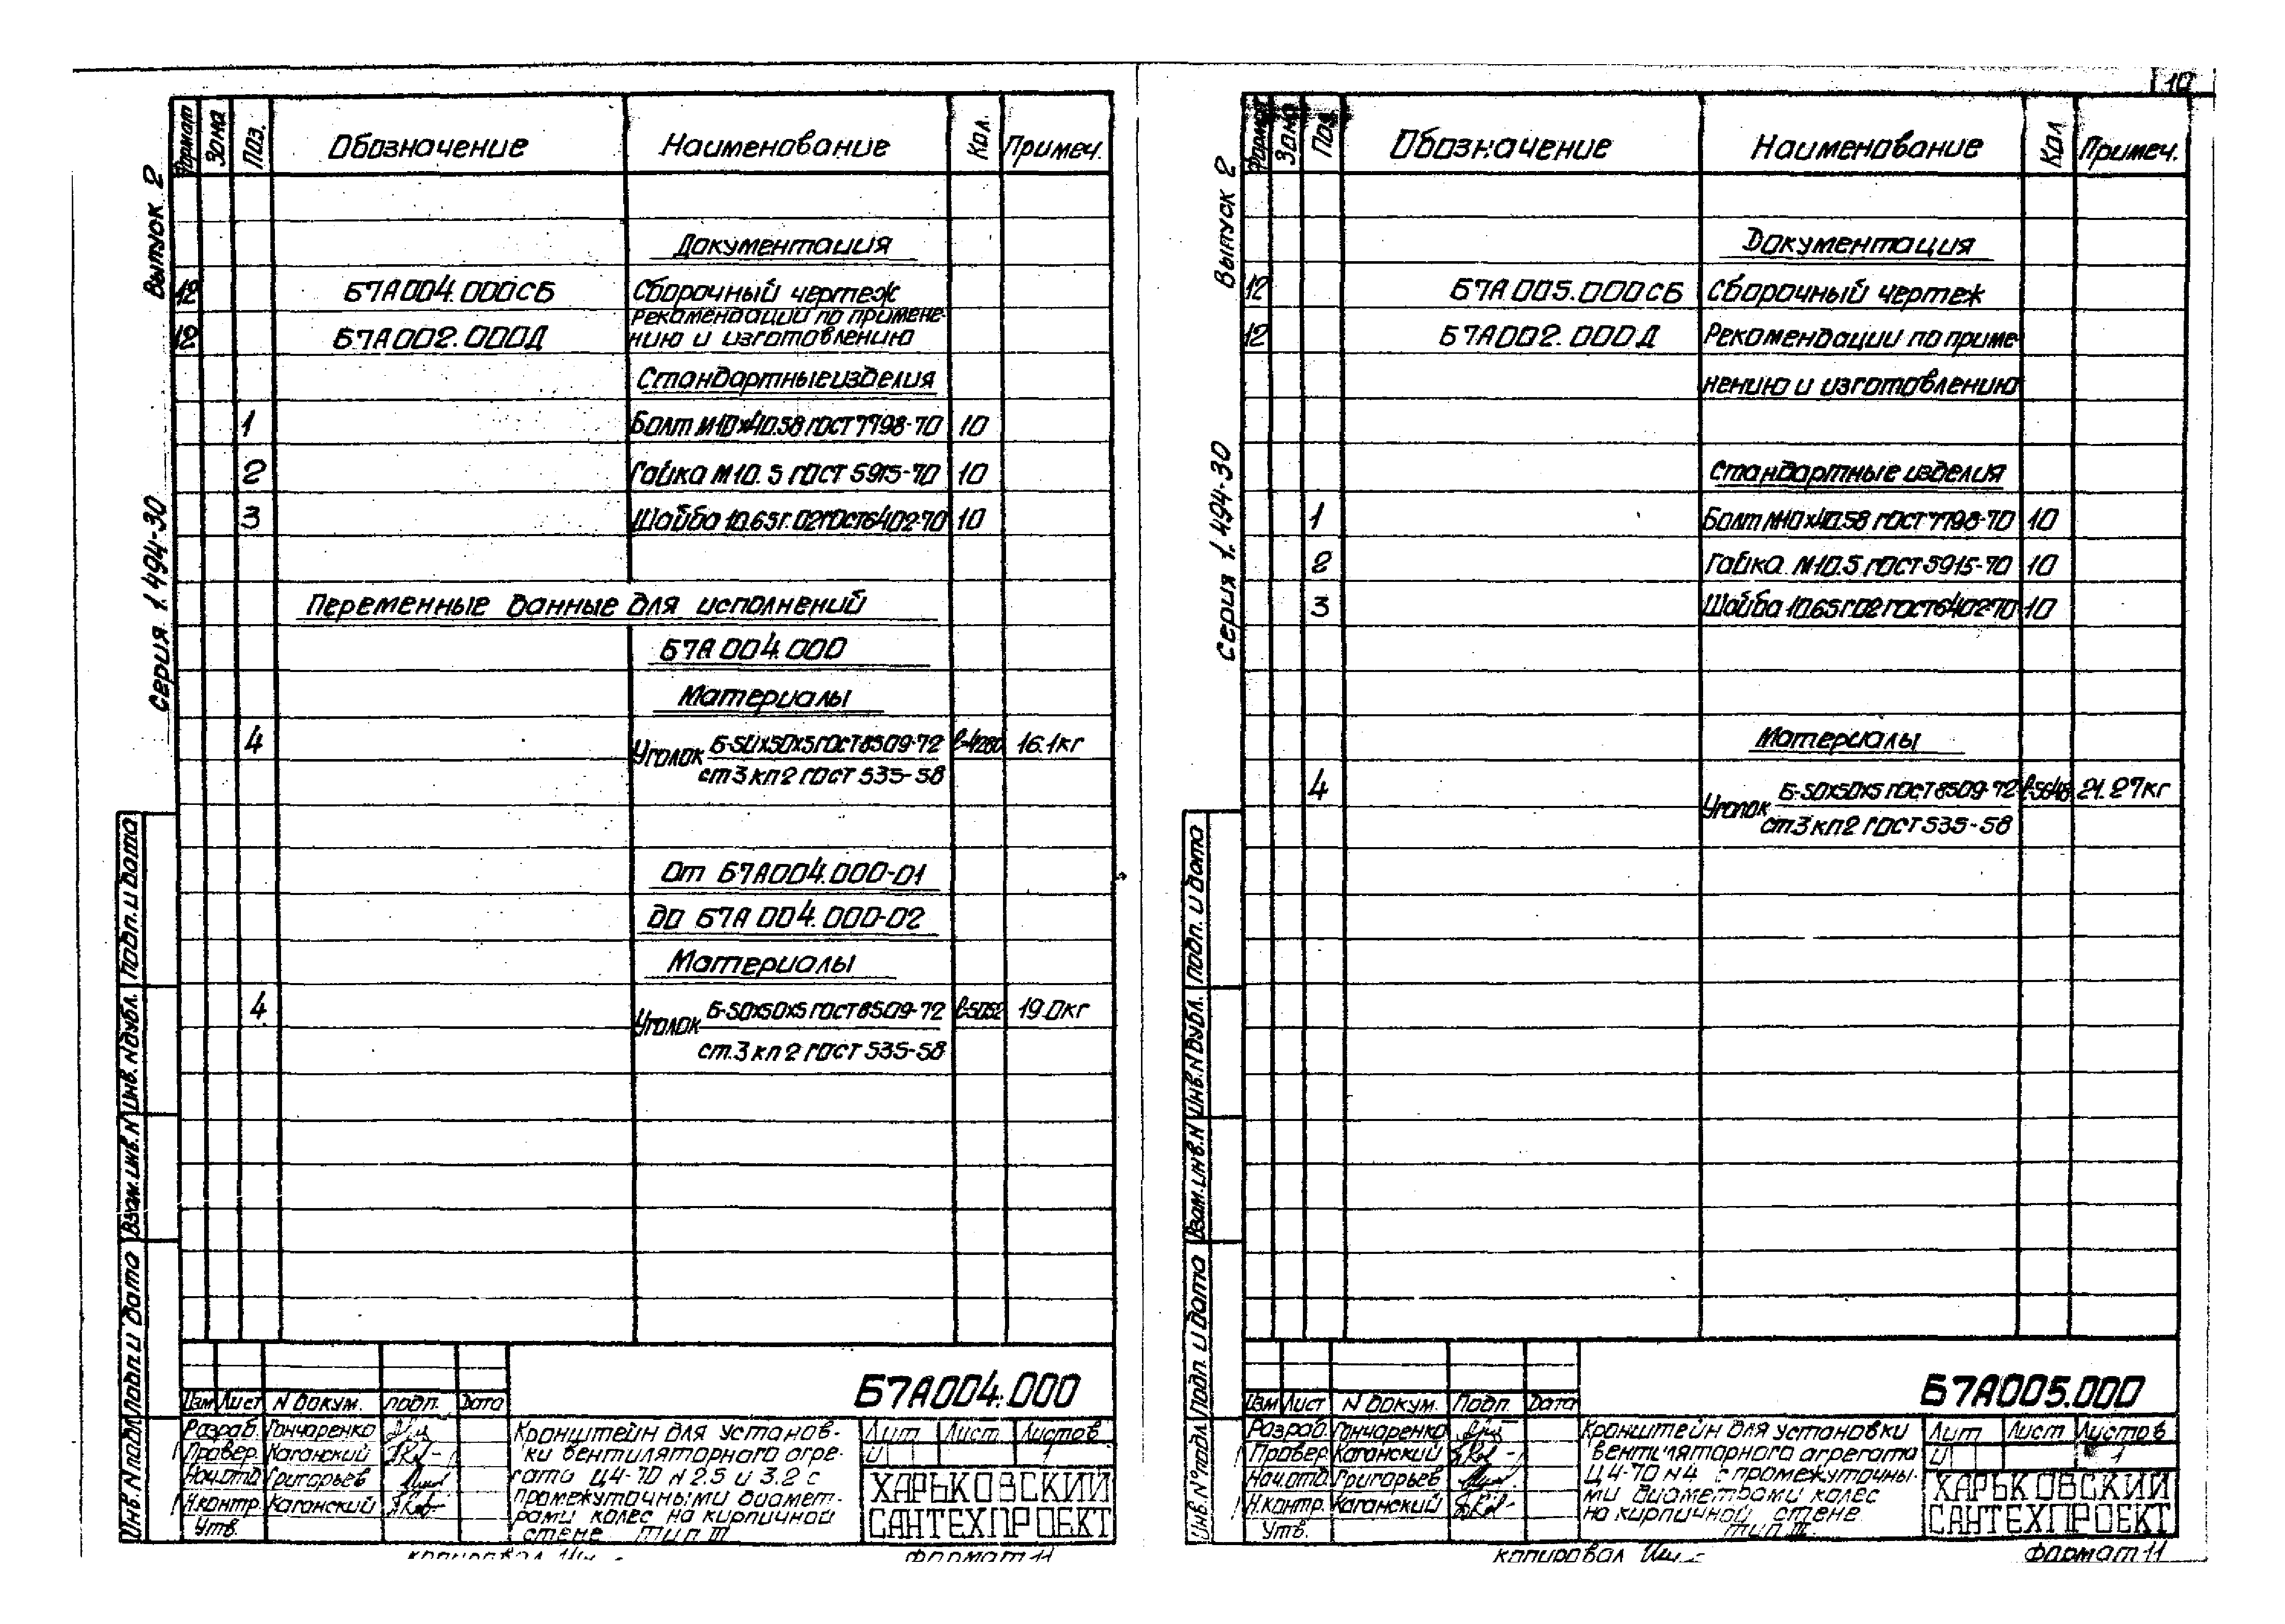 10
Выпуск 2
Серия 1.494-30
Формат Зона Поз. Обозначение Наименование Кол. Примеч.
Документация
12 Б7А004.000СБ Сборочный чертеж
Рекомендации по примене-
12 Б7А002.000Д нию и изготовлению
Стандартные изделия
1 Болт М10х40.58 ГОСТ 7798-70 10
2 Гайка М10.5 ГОСТ 5915-70 10
3 Шайба 10.65Г.02 ГОСТ 6402-70 10
Переменные данные для исполнений
Б7А004.000
Материалы
4 Уголок Б-50х50х5 ГОСТ 8509-72 ℓ-4280 16.1кг
ст3кп2 ГОСТ 535-58
От Б7А004.000-01
до Б7А004.000-02
Материалы
4 Уголок Б-50х50х5 ГОСТ 8509-72 ℓ-5052 19.0кг
ст.3кп2 ГОСТ 535-58
Инв. N подл. Подп. и дата Взам. инв. N Инв. N дубл. Подп. и дата
Б7А004.000
Изм Лист N докум. подп. Дата
Разраб. Гончаренко
Провер. Каганский
Нач.отд. Григорьев
Н.контр. Каганский
Утв.
Кронштейн для установ-
ки вентиляторного агре-
гата Ц4-70 N 2.5 и 3.2 с
промежуточными диамет-
рами колес на кирпичной
стене тип III
Лит Лист Листов
И 1
ХАРЬКОВСКИЙ
САНТЕХПРОЕКТ
копировал
формат 11
Выпуск 2
Серия 1.494-30
Формат Зона Поз. Обозначение Наименование Кол Примеч.
Документация
12 Б7А.005.000СБ Сборочный чертеж
12 Б7А002.000Д Рекомендации по приме
нению и изготовлению
Стандартные изделия
1 Болт М10х40.58 ГОСТ 7798-70 10
2 Гайка М10.5 ГОСТ 5915-70 10
3 Шайба 10.65Г.02 ГОСТ 6402-70 10
Материалы
4 Уголок Б-50х50х5 ГОСТ 8509-72 ℓ-5648 21.27кг
ст.3кп2 ГОСТ 535-58
Инв. N° подл. Подп. и дата Взам. инв. N Инв. N дубл. Подп. и дата
Б7А005.000
Изм Лист N докум. Подп. Дата
Разраб. Гончаренко
Провер. Каганский
Нач.отд. Григорьев
Н.контр. Каганский
Утв.
Кронштейн для установки
вентиляторного агрегата
Ц4-70 N4 с промежуточны-
ми диаметрами колес
на кирпичной стене
тип III.
Лит Лист Листов
И 1
ХАРЬКОВСКИЙ
САНТЕХПРОЕКТ
копировал
формат 11